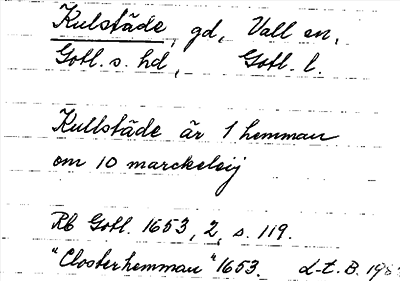 Kulstäde, gd, Vall sn,
Gotl. s. hd, Gotl. l.
Kullstäde är 1 hemman
om 10 marckeleij
Rb Gotl. 1653, 2, s. 119.
"Closterhemman" 1653. L-t. B.